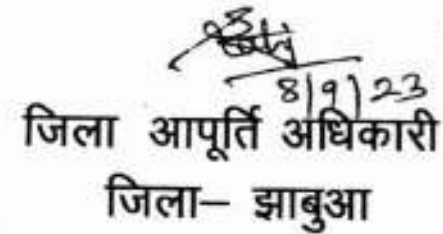 8/9/23
जिला आपूर्ति अधिकारी
जिला– झाबुआ